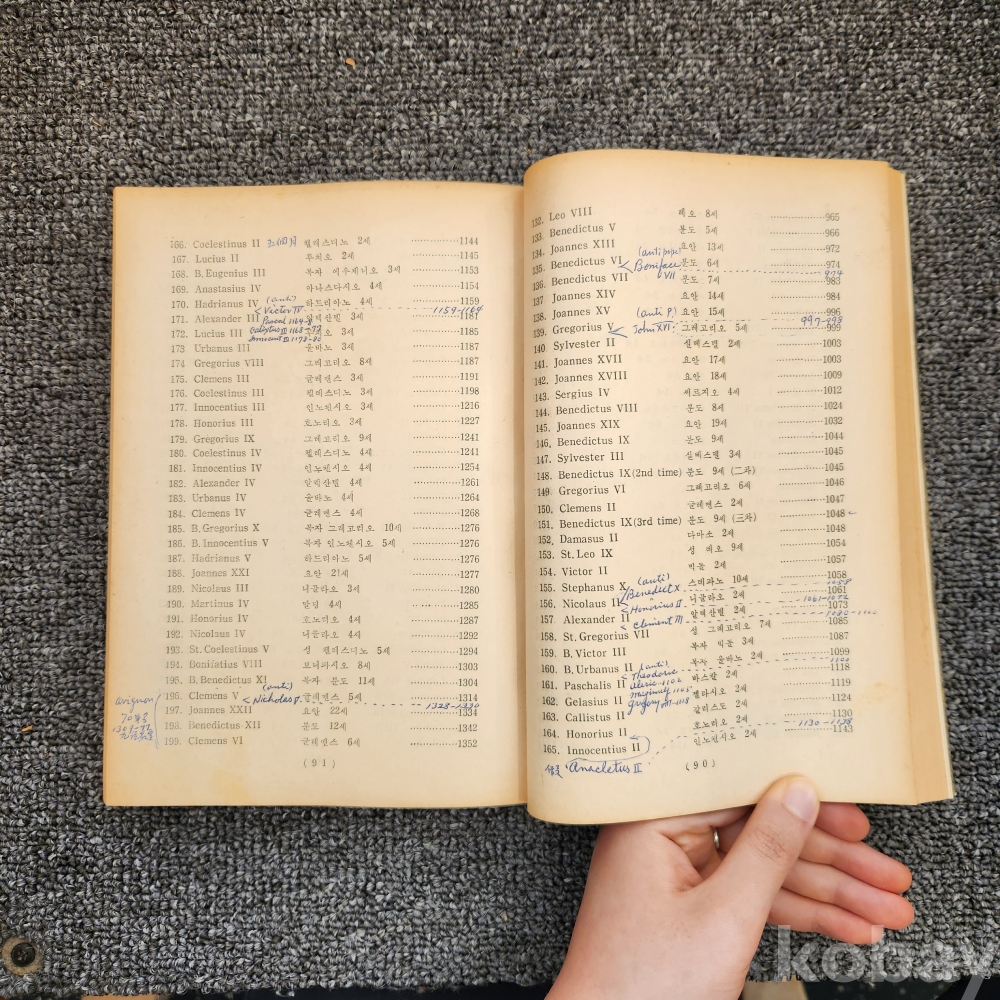 132. Leo VIII 레오 8세 965
133. Benedictus V 분도 5세 966
134. Joannes XIII 요안 13세 972
135. Benedictus VI 분도 6세 974
(anti pope) Boniface VII 974
136. Benedictus VII 분도 7세 983
137 Joannes XIV 요안 14세 984
138. Joannes XV 요안 15세 996
(anti P.) John XVI. 997-998
139. Gregorius V 그레고리오 5세 999
140 Sylvester II 실베스텔 2세 1003
141. Joannes XVII 요안 17세 1003
142. Joannes XVIII 요안 18세 1009
143. Sergius IV 써르지오 4세 1012
144. Benedictus VIII 분도 8세 1024
145. Joannes XIX 요안 19세 1032
146. Benedictus IX 분도 9세 1044
147. Sylvester III 실베스텔 3세 1045
148. Benedictus IX (2nd time) 분도 9세 (二차) 1045
149. Gregorius VI 그레고리오 6세 1046
150. Clemens II 글레멘스 2세 1047
151. Benedictus IX (3rd time) 분도 9세 (三차) 1048
152. Damasus II 다마소 2세 1048
153. St. Leo IX 성 레오 9세 1054
154. Victor II 빅톨 2세 1057
155. Stephanus X 스테파노 10세 1058
(anti) Benedict X 1058
156. Nicolaus II 니콜라오 2세 1061
Honorius II 1061-1072
157. Alexander II 알렉산델 2세 1073
Clement III 1080-1100
158. St. Gregorius VII 성 그레고리오 7세 1085
159. B. Victor III 복자 빅톨 3세 1087
160. B. Urbanus II 복자 울바노 2세 1099
(anti) Theodoric 1100
161. Paschalis II 바스칼 2세 1118
Aleric 1102
162. Gelasius II 젤라시오 2세 1119
163. Callistus II 갈리스도 2세 1124
164. Honorius II 호노리오 2세 1130
1130-1138
165. Innocentius II 인노첸시오 2세 1143
Anacletus II
(90)
166. Coelestinus II 첼레스디노 2세 1144
167. Lucius II 루치오 2세 1145
168. B. Eugenius III 복자 에우제니오 3세 1153
169. Anastasius IV 아나스타시오 4세 1154
170. Hadrianus IV 하드리아노 4세 1159
(anti) Victor IV 1159-1164
171. Alexander III 알렉산델 3세 1181
Pascal 1164-8
Calistus III 1168-78
Innocent III 1178-80
172. Lucius III 루치오 3세 1185
173 Urbanus III 울바노 3세 1187
174 Gregorius VIII 그레고리오 8세 1187
175. Clemens III 글레멘스 3세 1191
176. Coelestinus III 첼레스디노 3세 1198
177. Innocentius III 인노첸시오 3세 1216
178. Honorius III 호노리오 3세 1227
179. Gregorius IX 그레고리오 9세 1241
180. Coelestinus IV 첼레스디노 4세 1241
181. Innocentius IV 인노첸시오 4세 1254
182. Alexander IV 알렉산델 4세 1261
183. Urbanus IV 울바노 4세 1264
184. Clemens IV 글레멘스 4세 1268
185. B. Gregorius X 복자 그레고리오 10세 1276
186. B. Innocentius V 복자 인노첸시오 5세 1276
187. Hadrianus V 하드리아노 5세 1276
188. Joannes XXI 요안 21세 1277
189. Nicolaus III 니콜라오 3세 1280
190. Martinus IV 말딩 4세 1285
191. Honorius IV 호노리오 4세 1287
192. Nicolaus IV 니콜라오 4세 1292
193. St. Coelestinus V 성 첼레스디노 5세 1294
194. Bonifatius VIII 보니파시오 8세 1303
195. B. Benedictus XI 복자 분도 11세 1304
196. Clemens V 글레멘스 5세 1314
(anti) Nicholas V. 1328-1330
197. Joannes XXII 요안 22세 1334
198. Benedictus XII 분도 12세 1342
199. Clemens VI 글레멘스 6세 1352
avignon
(91)
kobay